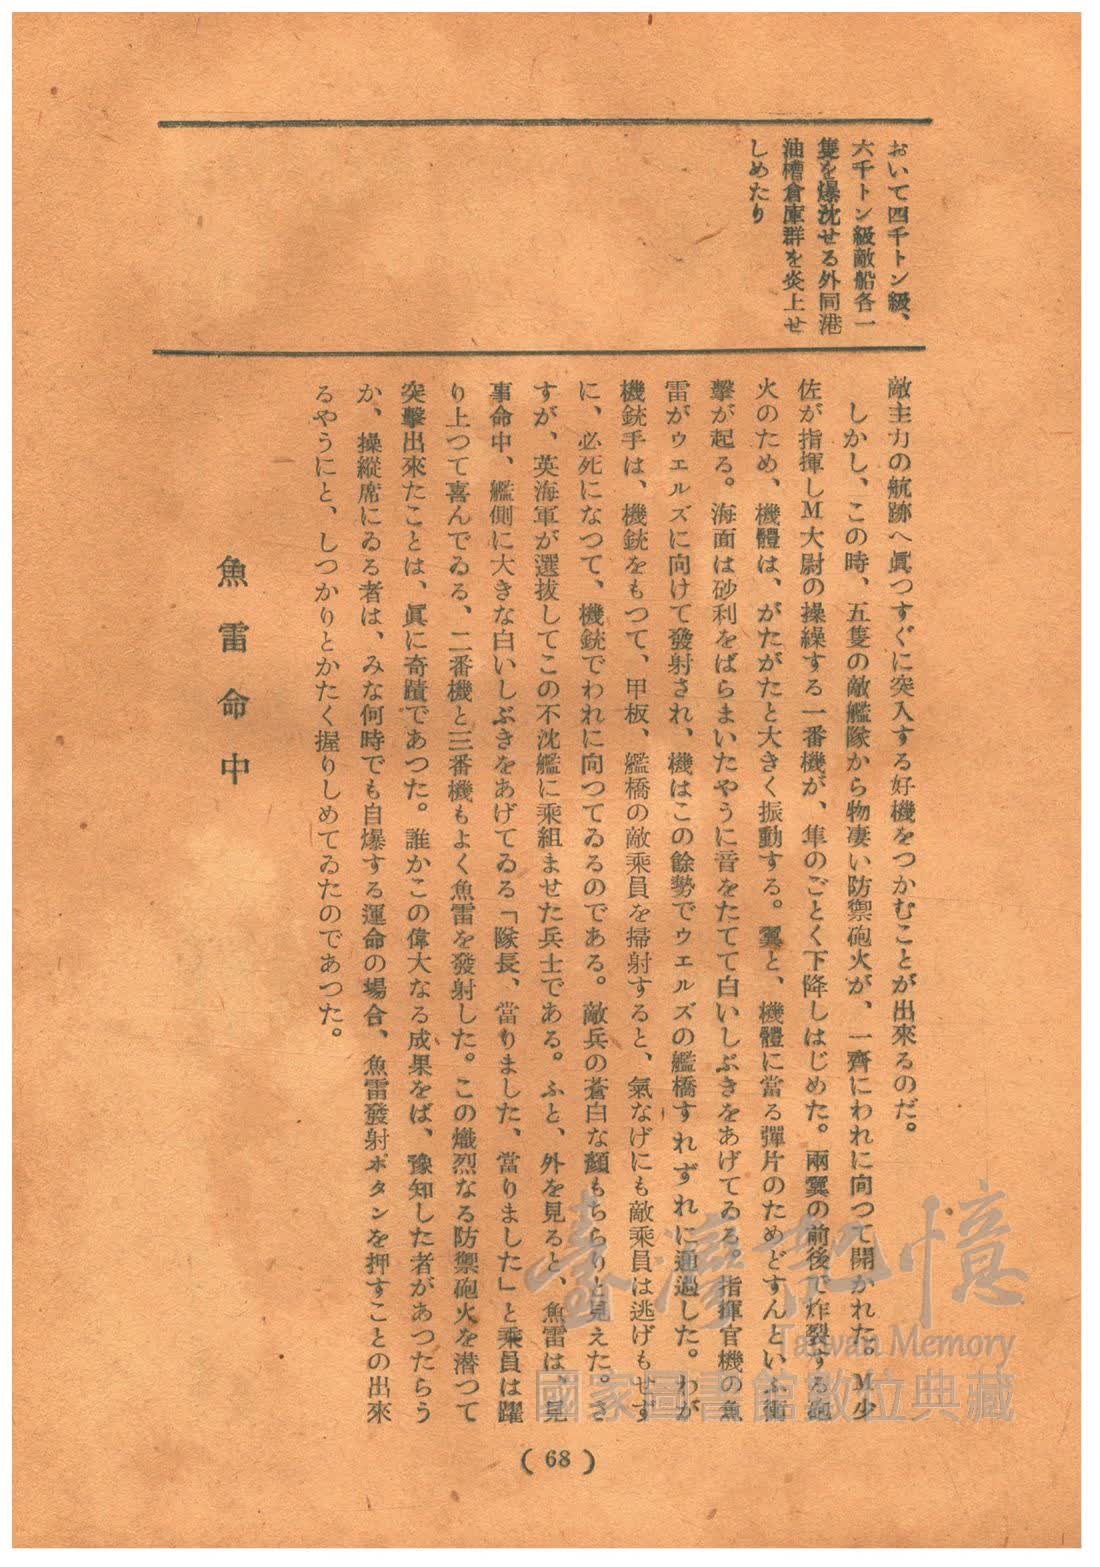 おいて四千トン級、
六千トン級敵船各一
隻を爆沈せる外同港
油槽倉庫群を炎上せ
しめたり
敵主力の航跡へ眞つすぐに突入する好機をつかむことが出來るのだ。
しかし、この時、五隻の敵艦隊から物凄い防禦砲火が、一齊にわれに向つて開かれた。M少
佐が指揮しM大尉の操繰する一番機が、隼のごとく下降しはじめた。兩翼の前後で炸裂する砲
火のため、機體は、がたがたと大きく振動する。翼と、機體に當る彈片のためどすんといふ衝
擊が起る。海面は砂利をばらまいたやうに音をたてて白いしぶきをあげてゐる。指揮官機の魚
雷がウエルズに向けて發射され、機はこの餘勢でウェルズの艦橋すれずれに通過した。わが
機銃手は、機銃をもつて、甲板、艦橋の敵乘員を掃射すると、氣なげにも敵乘員は逃げもせず
に、必死になつて、機銃でわれに向つてゐるのである。敵兵の蒼白な顏もちらりと見えた。さ
すが、英海軍が選拔してこの不沈艦に乘組ませた兵士である。ふと、外を見ると、魚雷は、見
事命中、艦側に大きな白いしぶきをあげてゐる「隊長、當りました、當りました」と乘員は躍
り上つて喜んでゐる、二番機と三番機もよく魚雷を發射した。この熾烈なる防禦砲火を潜つて
突擊出來たことは、眞に奇蹟であつた。誰かこの偉大なる成果をば、豫知した者があつたらう
か、操縱席にゐる者は、みな何時でも自爆する運命の場合、魚雷發射ボタンを押すことの出來
るやうにと、しつかりとかたく握りしめてゐたのであつた。
魚雷命中
(68)
臺灣記憶
Taiwan Memory
國家圖書館數位典藏